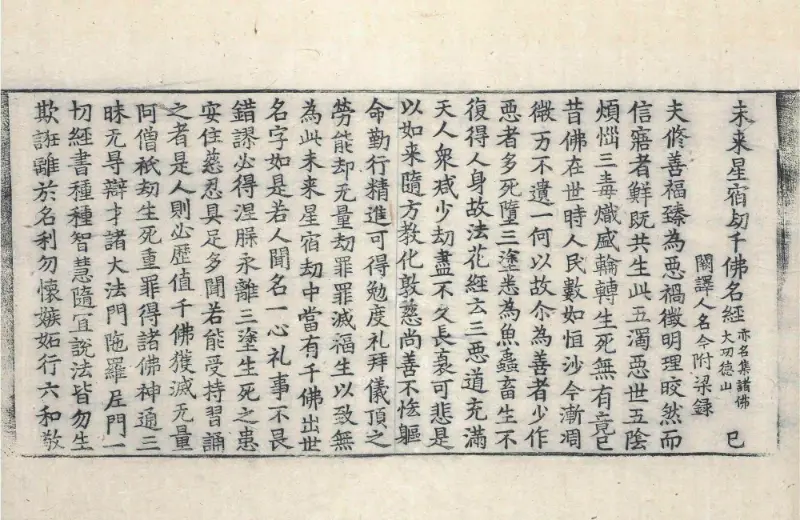 未来星宿刧千佛名經 亦名集諸佛
大功德山 巳
闕譯人名今附梁録
夫修善福臻為惡禍徵明理皎然而
信寤者鮮既共生此五濁惡世五陰
煩惱三毒熾盛輪轉生死無有竟已
昔佛在世時人民數如恒沙今漸凋
微万不遺一何以故尒為善者少作
惡者多死墮三塗悉為魚蟲畜生不
復得人身故法花經云三惡道充滿
天人衆減少劫盡不久長衰可悲是
以如来隨方教化敦慈尚善不恡軀
命勤行精進可得勉度礼拜儀頂之
勞能却无量劫罪罪滅福生以致無
為此未来星宿劫中當有千佛出世
名字如是若人聞名一心礼事不畏
錯謬必得涅槃永離三塗生死之患
安住慈忍具足多聞若能受持習誦
之者是人則必歷值千佛獲滅无量
阿僧祇劫生死重罪得諸佛神通三
昧无㝵辯才諸大法門陁羅尼門一
切經書種種智慧隨宜說法皆勿生
欺誑離於名利勿懷嫉妬行六和敬